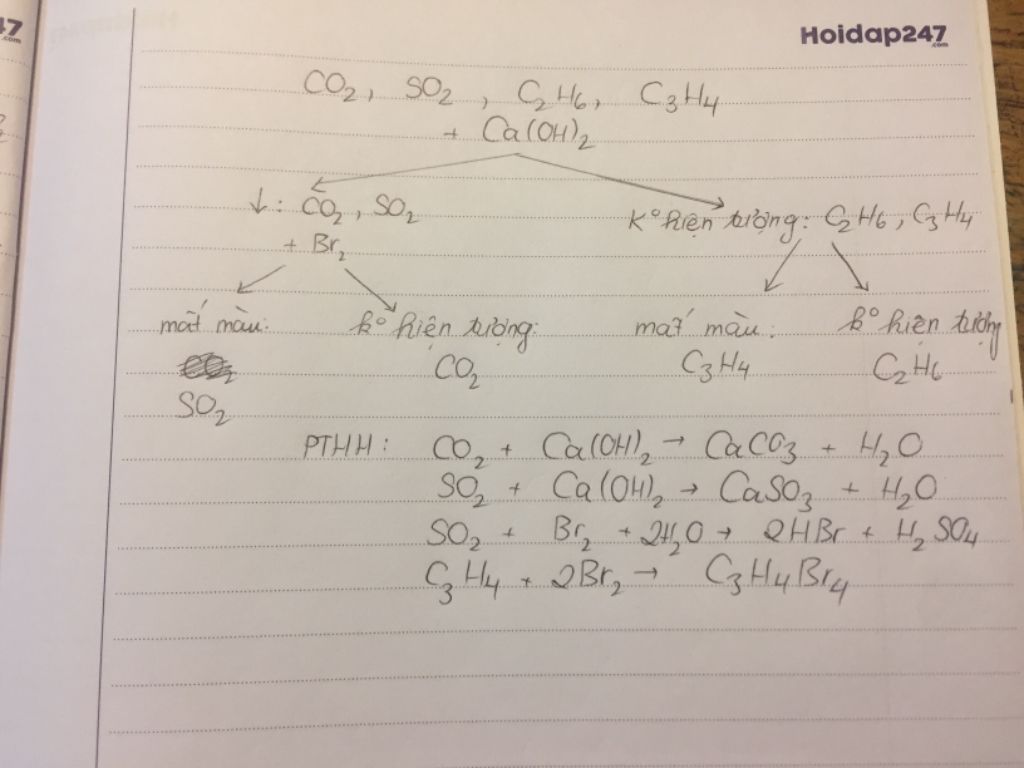 47
.com
Hoidap247
.com
CO₂, SO₂ , C₂H₆, C₃H₄
+ Ca(OH)₂
↓: CO₂, SO₂
k° hiện tượng: C₂H₆, C₃H₄
+ Br₂
mất màu: k° hiện tượng: mất màu: k° hiện tượng
CO₂ C₃H₄ C₂H₆
SO₂
PTHH: CO₂ + Ca(OH)₂ → CaCO₃ + H₂O
SO₂ + Ca(OH)₂ → CaSO₃ + H₂O
SO₂ + Br₂ + 2H₂O → 2HBr + H₂SO₄
C₃H₄ + 2Br₂ → C₃H₄Br₄